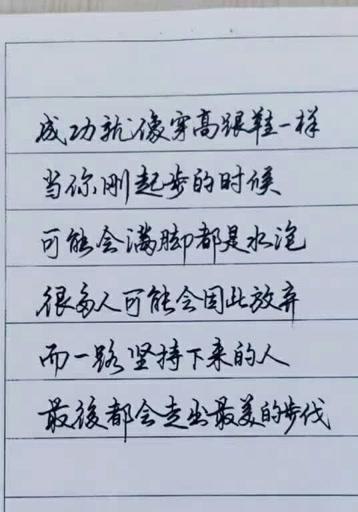 成功就像穿高跟鞋一样
当你刚起步的时候
可能会满脚都是水泡
很多人可能会因此放弃
而一路坚持下来的人
最後都会走出最美的步伐